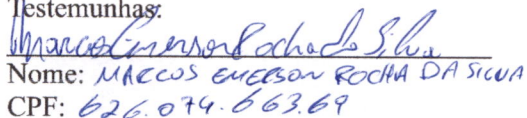 Testemunhas:
Marcos Emerson Rocha da Silva
Nome: MARCOS EMERSON ROCHA DA SILVA
CPF: 626.074.663.69